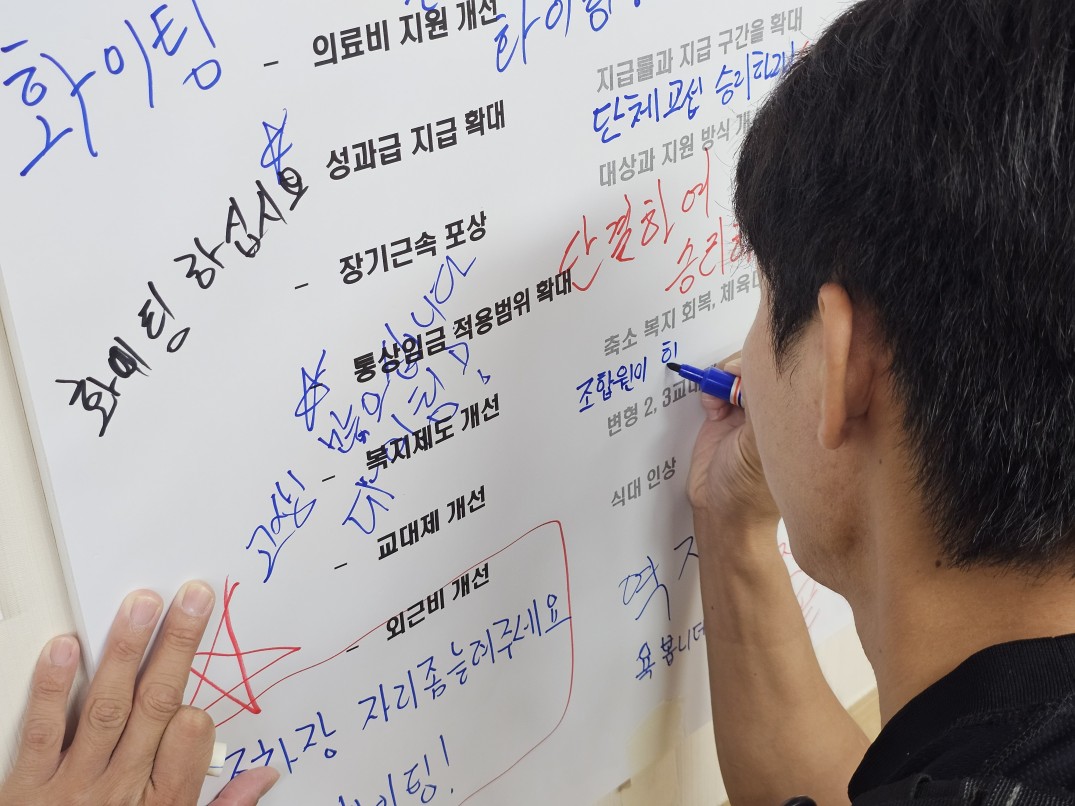 화이팅
- 의료비 지원 개선
화이팅
지급률과 지급 구간을 확대
단체교섭 승리하라
- 성과급 지급 확대
대상과 지원 방식 개
화이팅 하십시요
단결하여
승리하
- 장기근속 포상
통상임금 적용범위 확대
축소 복지 회복, 체육
조합원이 히
변형 2, 3교대
고생
많으십니다
대
- 복지제도 개선
식대 인상
- 교대제 개선
- 외근비 개선
역
욕봅니데
주차장 자리좀늘려주세요
화이팅!